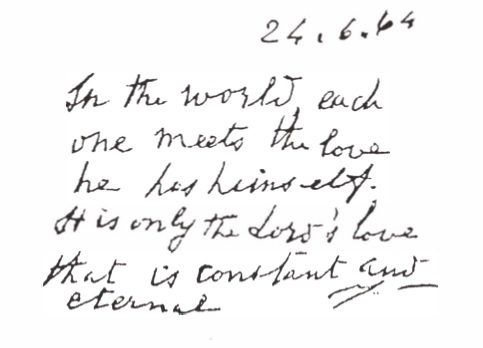 24.6.64
In the world, each
one meets the love
he has himself.
It is only the Lord's love
that is constant and
eternal